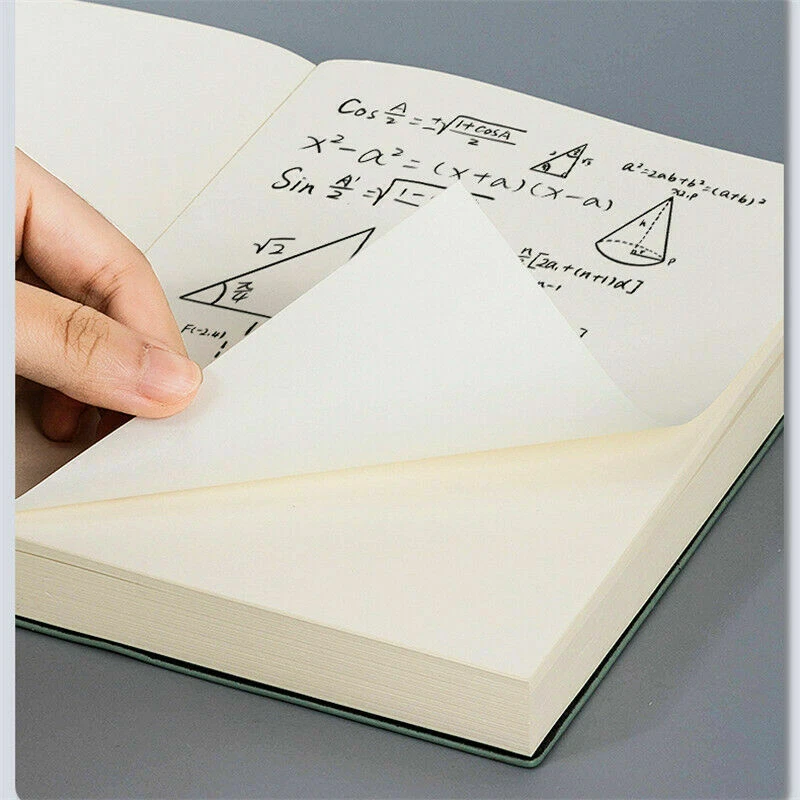 Cos A/2 = ±√(1+cosA)/2
x²-a²=(x+a)(x-a)
a²=2ab+b²=(a+b)²
Sin A/2 = √1-
h
P
√2
π/4
n/2[2a₁+(n+1)d]
n-1
F(-2,4)